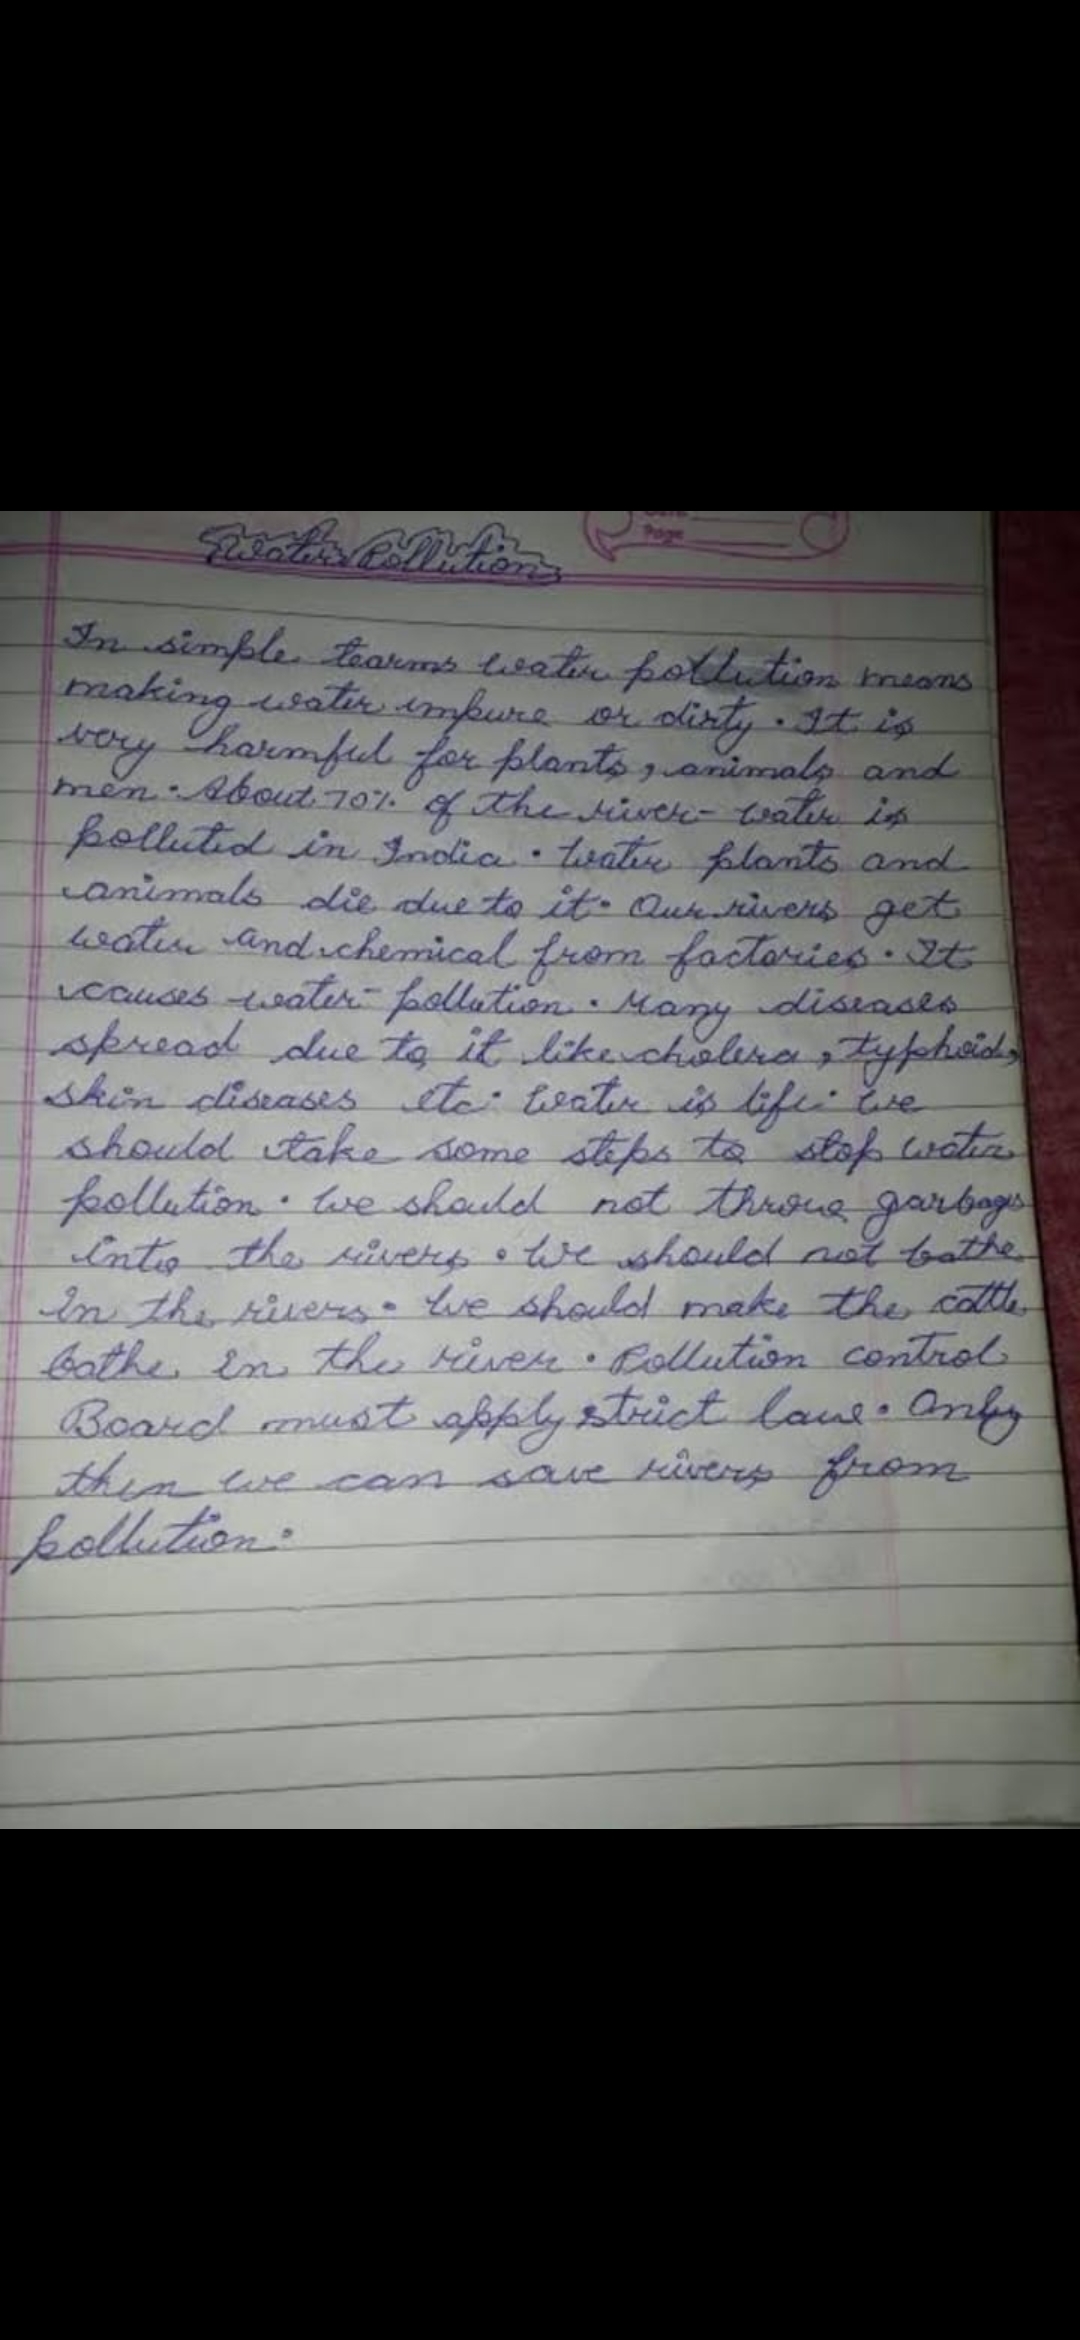 Page
Water Pollution
In simple tearms water pollution means
making water impure or dirty. It is
very harmful for plants, animals and
men. About 70% of the river-water is
polluted in India. Water plants and
animals die due to it. Our rivers get
water and chemical from factories. It
causes water-pollution. Many diseases
spread due to it like cholera, typhoid,
skin diseases etc. Water is life. We
should take some steps to stop water
pollution. We should not throw garbages
into the rivers. We should not bathe
in the rivers. We should make the cattle
bathe in the river. Pollution control
Board must apply strict law. Only
then we can save rivers from
pollution.